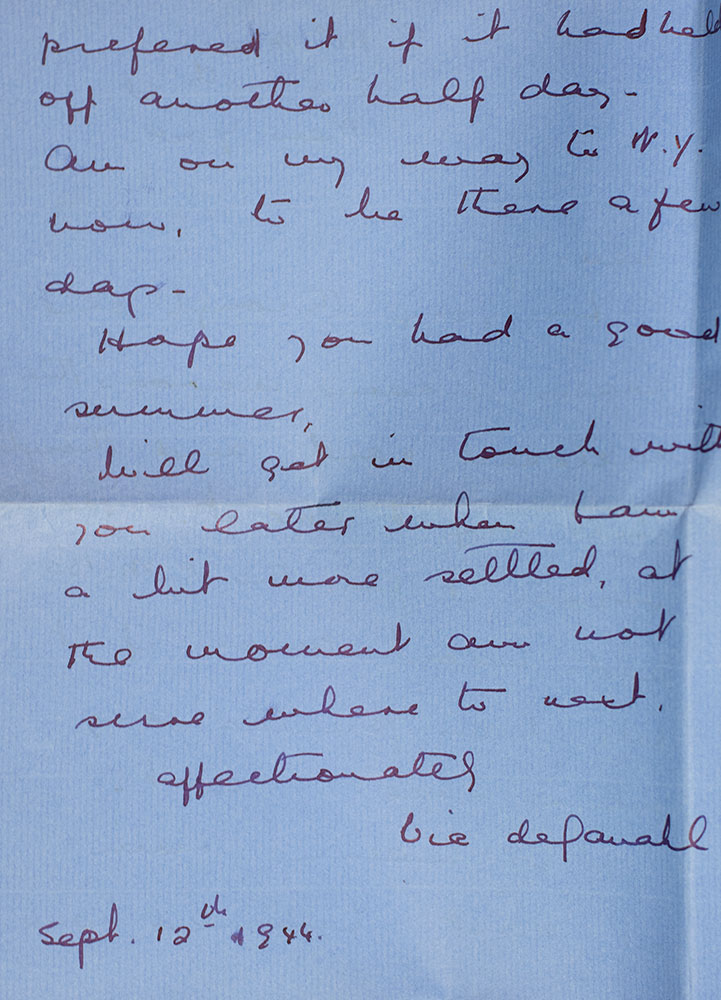 prefered it if it had held
off another half day -
Am on my way to N.Y.
now, to be there a few
days -
Hope you had a good
summer,
Will get in touch with
you later when I am
a bit more settled, at
the moment am not
sure where to next.
affectionately
Vie deGanahl
Sept. 12th 1944.